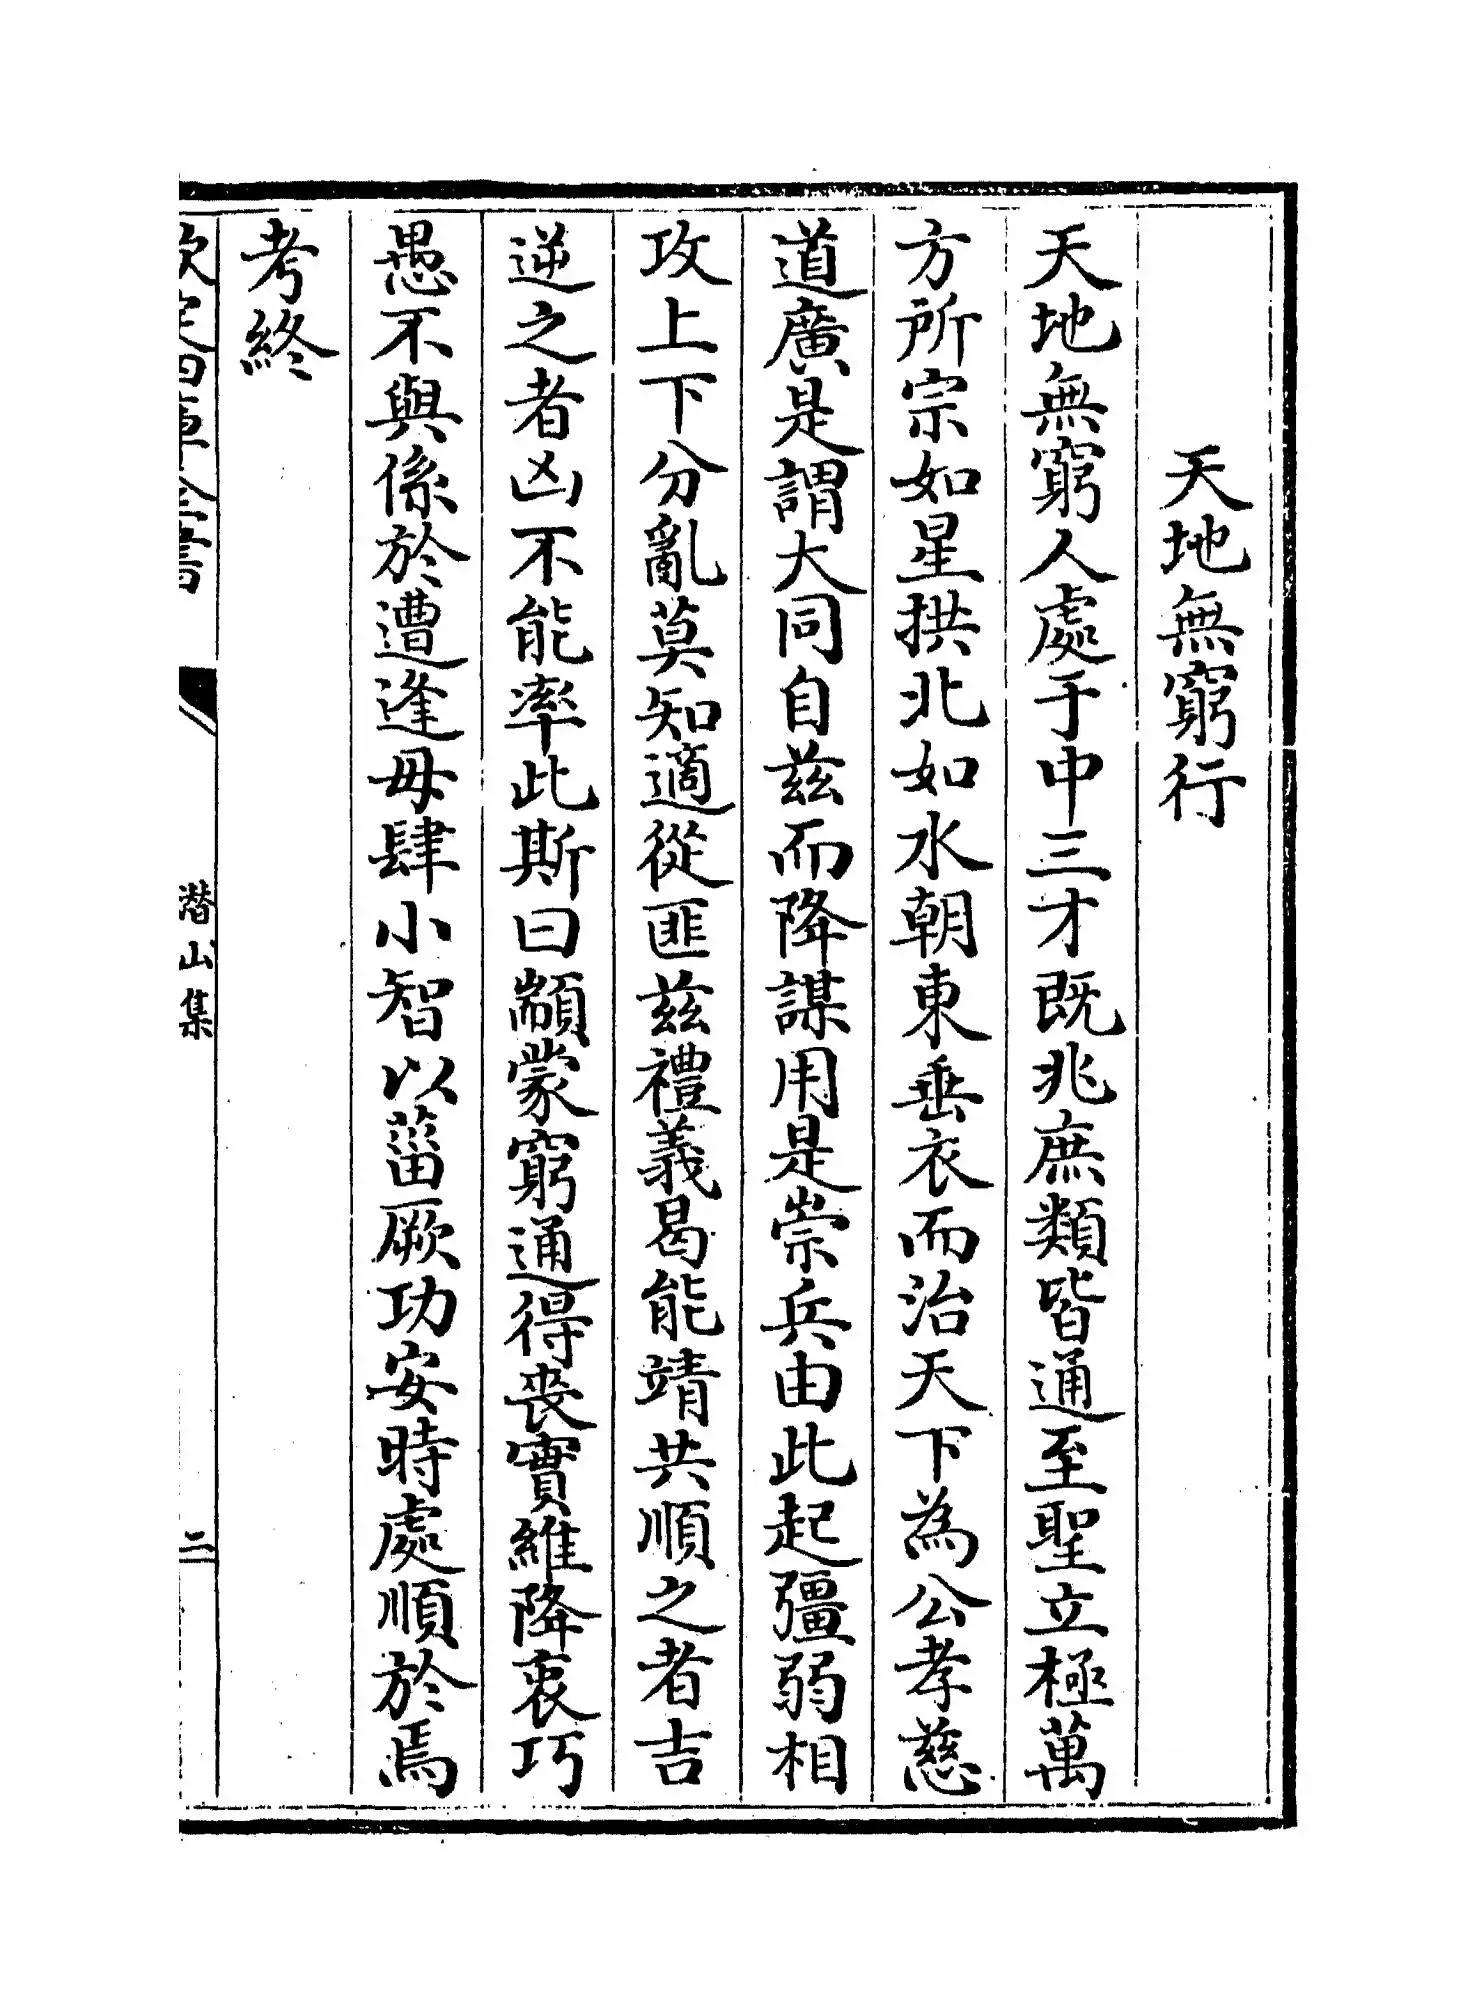 天地無窮行
天地無窮人處于中三才既兆庶類皆通至聖立極萬
方所宗如星拱北如水朝東垂衣而治天下為公孝慈
道廣是謂大同自兹而降謀用是崇兵由此起彊弱相
攻上下分亂莫知適從匪兹禮義曷能靖共順之者吉
逆之者凶不能率此斯曰顓蒙窮通得喪實維降衷巧
愚不與係於遭逢毋肆小智以菑厥功安時處順於焉
考終
欽定四庫全書
潛山集
二